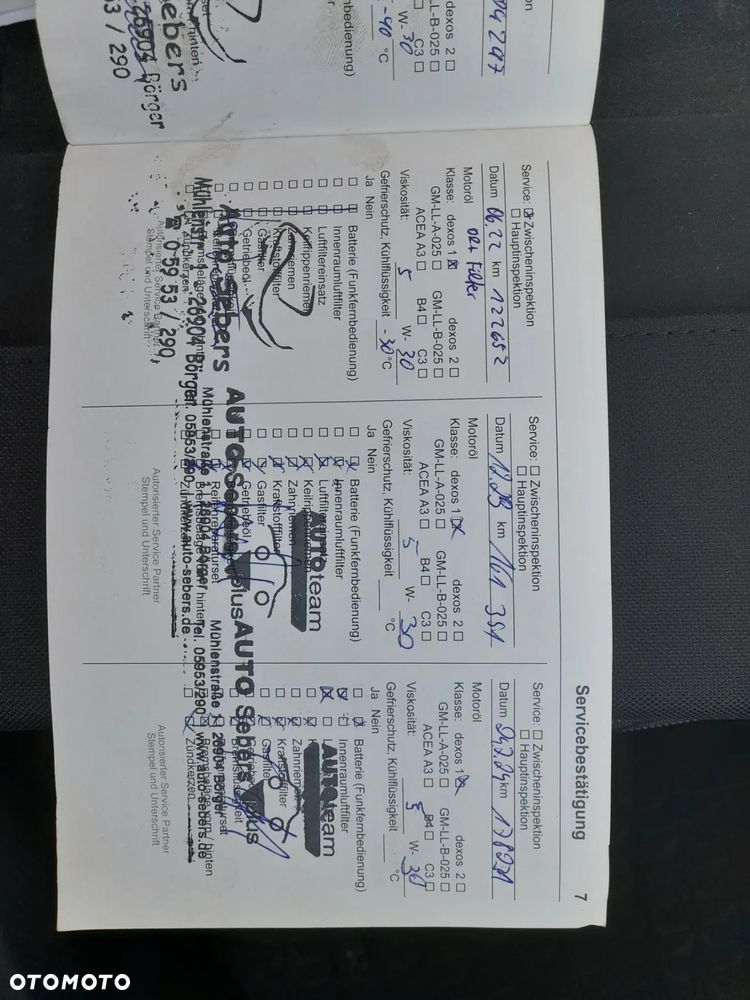 04 297
dexos 2 ☐
LL-B-025 ☐
C3 ☐
W- 30
-40 °C
bedienung)
hinten
Sebers
26904 Börger
53 / 290
Servicebestätigung 7
Service: ☒ Zwischeninspektion
☐ Hauptinspektion
Datum 06.22 km 122652
Motoröl Öl + Filter
Klasse: dexos 1 ☒ dexos 2 ☐
GM-LL-A-025 ☐ GM-LL-B-025 ☐
ACEA A3 ☐ B4 ☐ C3 ☐
Viskosität: 5 W- 30
Gefrierschutz, Kühlflüssigkeit -30 °C
Ja Nein
Batterie (Funkfernbedienung)
Innenraumluftfilter
Luftfiltereinsatz
Keilrippenriemen
Zahnriemen
Kraftstofffilter
Gasfilter
Getriebeöl
Auto Sebers
Mühlenstr. 1, 26904 Börger
☎ 0 59 53 / 290
Autorisierter Service Partner
Stempel und Unterschrift
Service: ☐ Zwischeninspektion
☐ Hauptinspektion
Datum 12.23 km 161 351
Motoröl
Klasse: dexos 1 ☒ dexos 2 ☐
GM-LL-A-025 ☐ GM-LL-B-025 ☐
ACEA A3 ☐ B4 ☐ C3 ☐
Viskosität: 5 W- 30
Gefrierschutz, Kühlflüssigkeit °C
Ja Nein
Batterie (Funkfernbedienung)
Innenraumluftfilter
Zahnriemen
Kraftstofffilter
Gasfilter
Getriebeöl
Reifenreparaturset
Zündkerzen
AUTOteam plus
AUTO Sebers
Mühlenstraße 1, 26904 Börger
Tel. 05953/290 www.auto-sebers.de
Autorisierter Service Partner
Stempel und Unterschrift
Service: ☐ Zwischeninspektion
☐ Hauptinspektion
Datum km
Motoröl
Klasse: dexos 1 ☒ dexos 2 ☐
GM-LL-A-025 ☐ GM-LL-B-025 ☐
ACEA A3 ☐ B4 ☐ C3 ☐
Viskosität: 5 W- 30
Gefrierschutz, Kühlflüssigkeit °C
Ja Nein
Batterie (Funkfernbedienung)
Innenraumluftfilter
Zahnriemen
Kraftstofffilter
Gasfilter
Zündkerzen
AUTOteam plus
AUTO Sebers
Mühlenstraße 1, 26904 Börger
Tel. 05953/290 www.auto-sebers.de
Autorisierter Service Partner
Stempel und Unterschrift
OTOMOTO